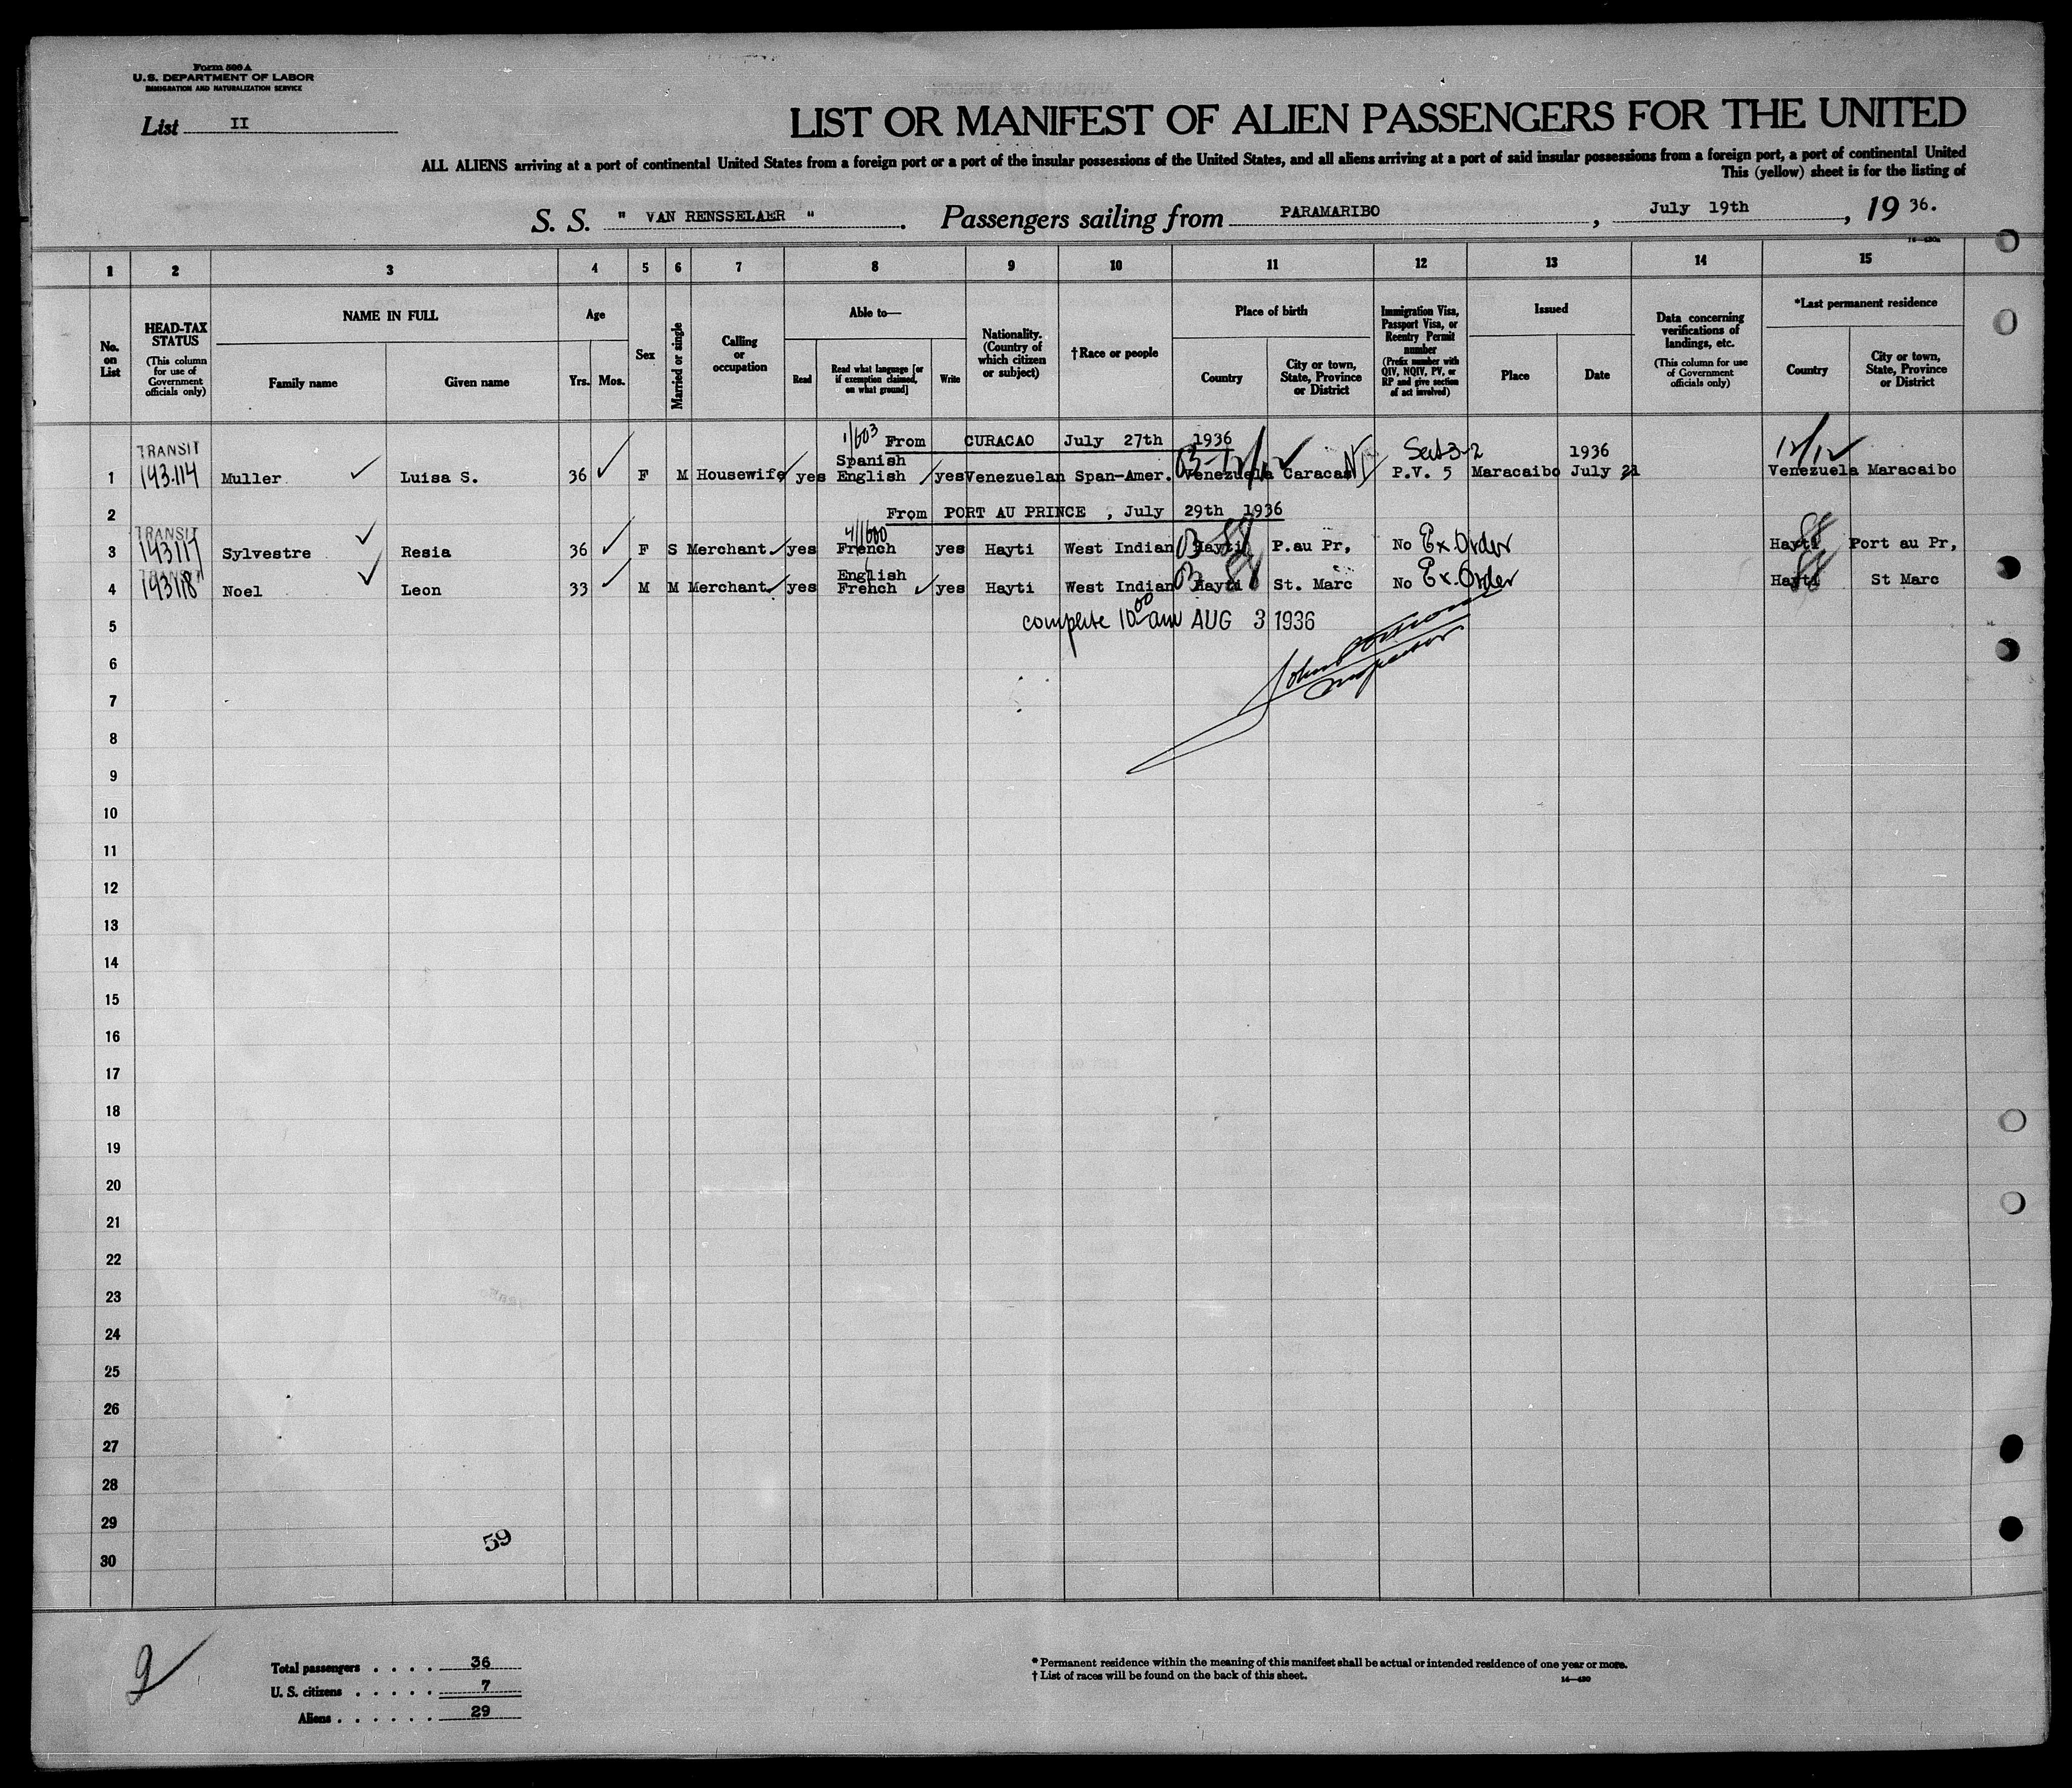 Form 500 A
U.S. DEPARTMENT OF LABOR
IMMIGRATION AND NATURALIZATION SERVICE
List II
LIST OR MANIFEST OF ALIEN PASSENGERS FOR THE UNITED
ALL ALIENS arriving at a port of continental United States from a foreign port or a port of the insular possessions of the United States, and all aliens arriving at a port of said insular possessions from a foreign port, a port of continental United
This (yellow) sheet is for the listing of
S. S. " VAN RENSSELAER " . Passengers sailing from PARAMARIBO , July 19th , 19 36.
1 2 3 4 5 6 7 8 9 10 11 12 13 14 15
No. on List
HEAD-TAX STATUS (This column for use of Government officials only)
NAME IN FULL
Family name Given name
Age
Yrs. Mos.
Sex
Married or single
Calling or occupation
Able to—
Read Read what language [or if exemption claimed, on what ground] Write
Nationality. (Country of which citizen or subject)
†Race or people
Place of birth
Country City or town, State, Province or District
Immigration Visa, Passport Visa, or Reentry Permit number (Prefix number with QIV, NQIV, PV, or RP and give section of act involved)
Issued
Place Date
Data concerning verifications of landings, etc. (This column for use of Government officials only)
*Last permanent residence
Country City or town, State, Province or District
1/603 From CURACAO July 27th 1936
TRANSIT Spanish Sect 3-2 1936 12/12
1 143.114 Muller Luisa S. 36 F M Housewife yes English yes Venezuelan Span-Amer. Venezuela Caracas P.V. 5 Maracaibo July 21 Venezuela Maracaibo
2 From PORT AU PRINCE , July 29th 1936
TRANSIT 4/1600 88 88
3 143117 Sylvestre Resia 36 F S Merchant yes French yes Hayti West Indian Hayti P.au Pr, No Ex. Order Hayti Port au Pr,
TRANSIT English 88 88
4 143118 Noel Leon 33 M M Merchant yes French yes Hayti West Indian Hayti St. Marc No Ex. Order Hayti St Marc
5 complete 10 00 am AUG 3 1936
6 John
7 Inspector
8
9
10
11
12
13
14
15
16
17
18
19
20
21
22
23
24
25
26
27
28
29
30
59
2
Total passengers . . . . 36
U. S. citizens . . . . . 7
Aliens . . . . . . 29
* Permanent residence within the meaning of this manifest shall be actual or intended residence of one year or more.
† List of races will be found on the back of this sheet.
14—430